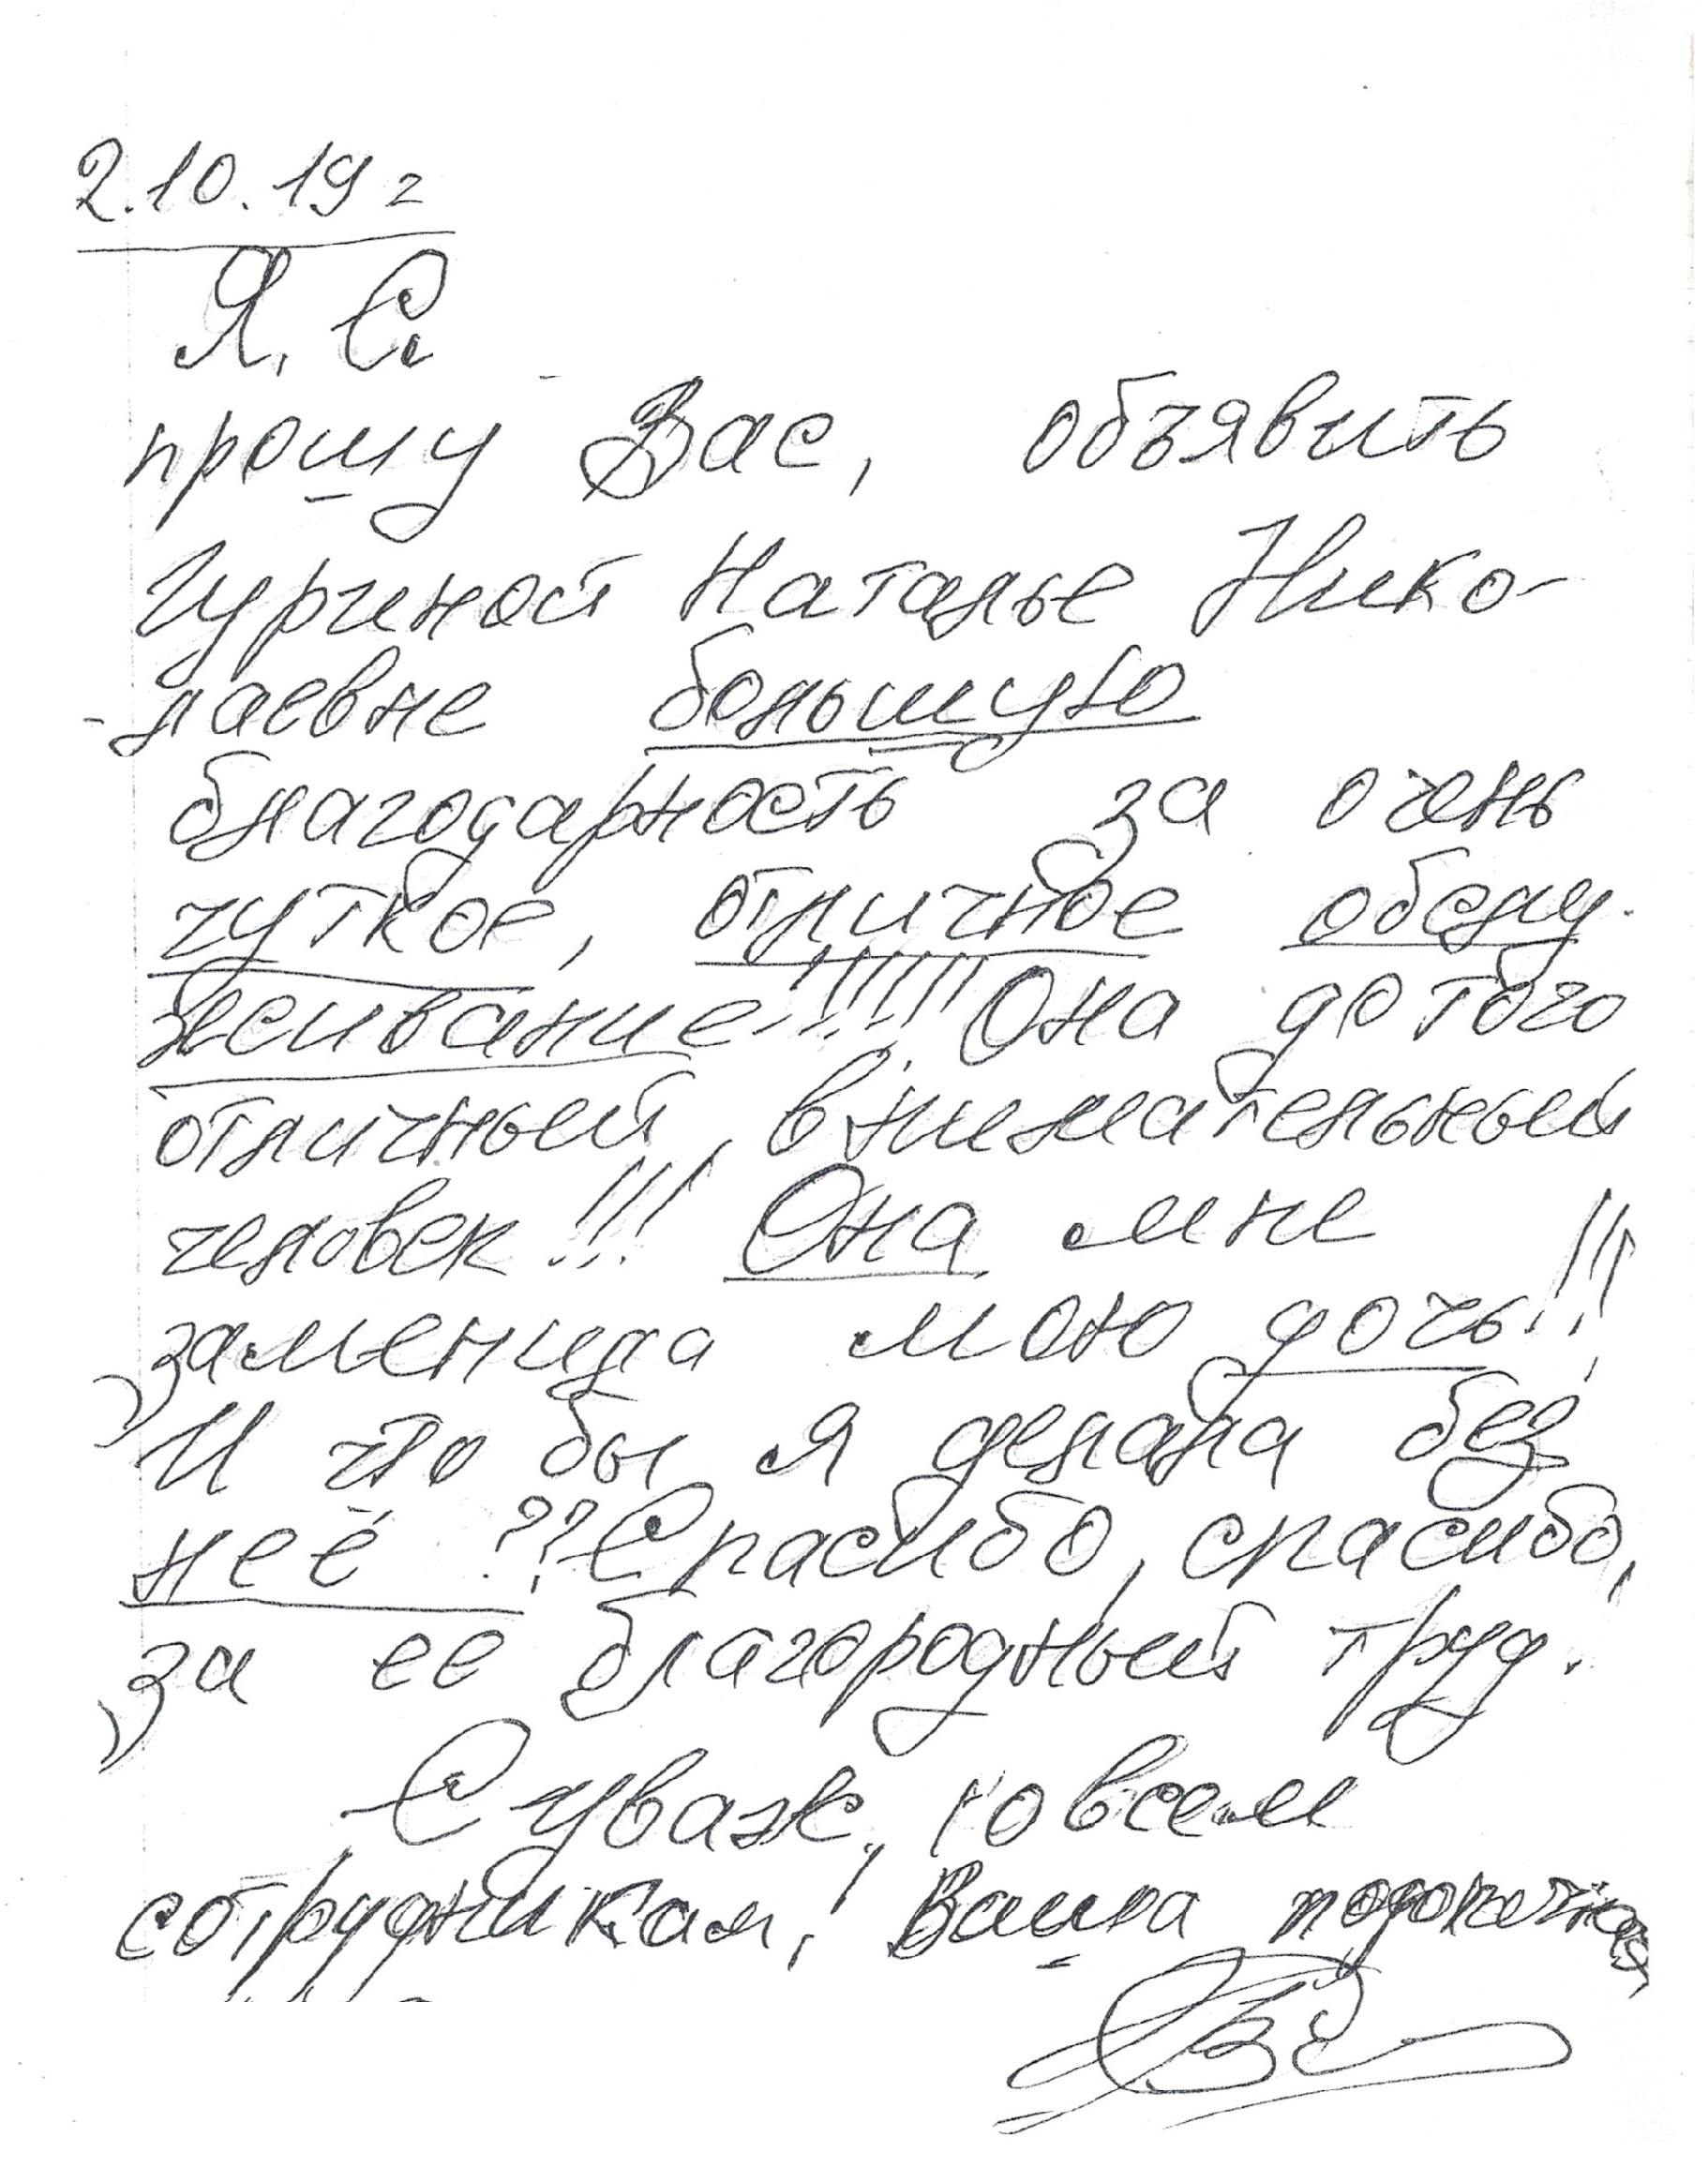 2.10.19 г
Я, С.
прошу Вас, объявить
Гуриной Наталье Нико-
-лаевне большую
благодарность за очень
чуткое, отличное обслу-
живание!!!!! Она до того
отличный, внимательный
человек!!! Она мне
заменила мою дочь!!!
И что бы я делала без
неё ?? Спасибо, спасибо,
за ее благородный труд.
С уваж., ко всем
сотрудникам, Ваша подопечная